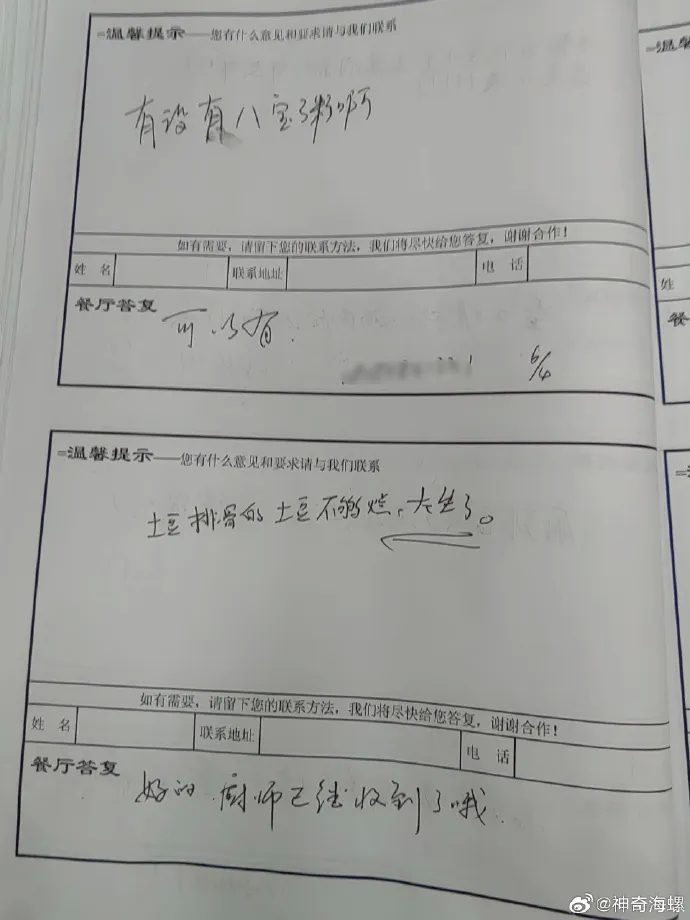 =温馨提示——您有什么意见和要求请与我们联系
有没有八宝粥啊
如有需要，请留下您的联系方法，我们将尽快给您答复，谢谢合作！
姓 名 联系地址 电 话
餐厅答复
可以有.
6/4
=温馨提示——您有什么意见和要求请与我们联系
土豆排骨的土豆不够烂，太生了。
如有需要，请留下您的联系方法，我们将尽快给您答复，谢谢合作！
姓 名 联系地址 电 话
餐厅答复
好的 厨师已经收到了哦.
=温馨
姓
餐
@神奇海螺